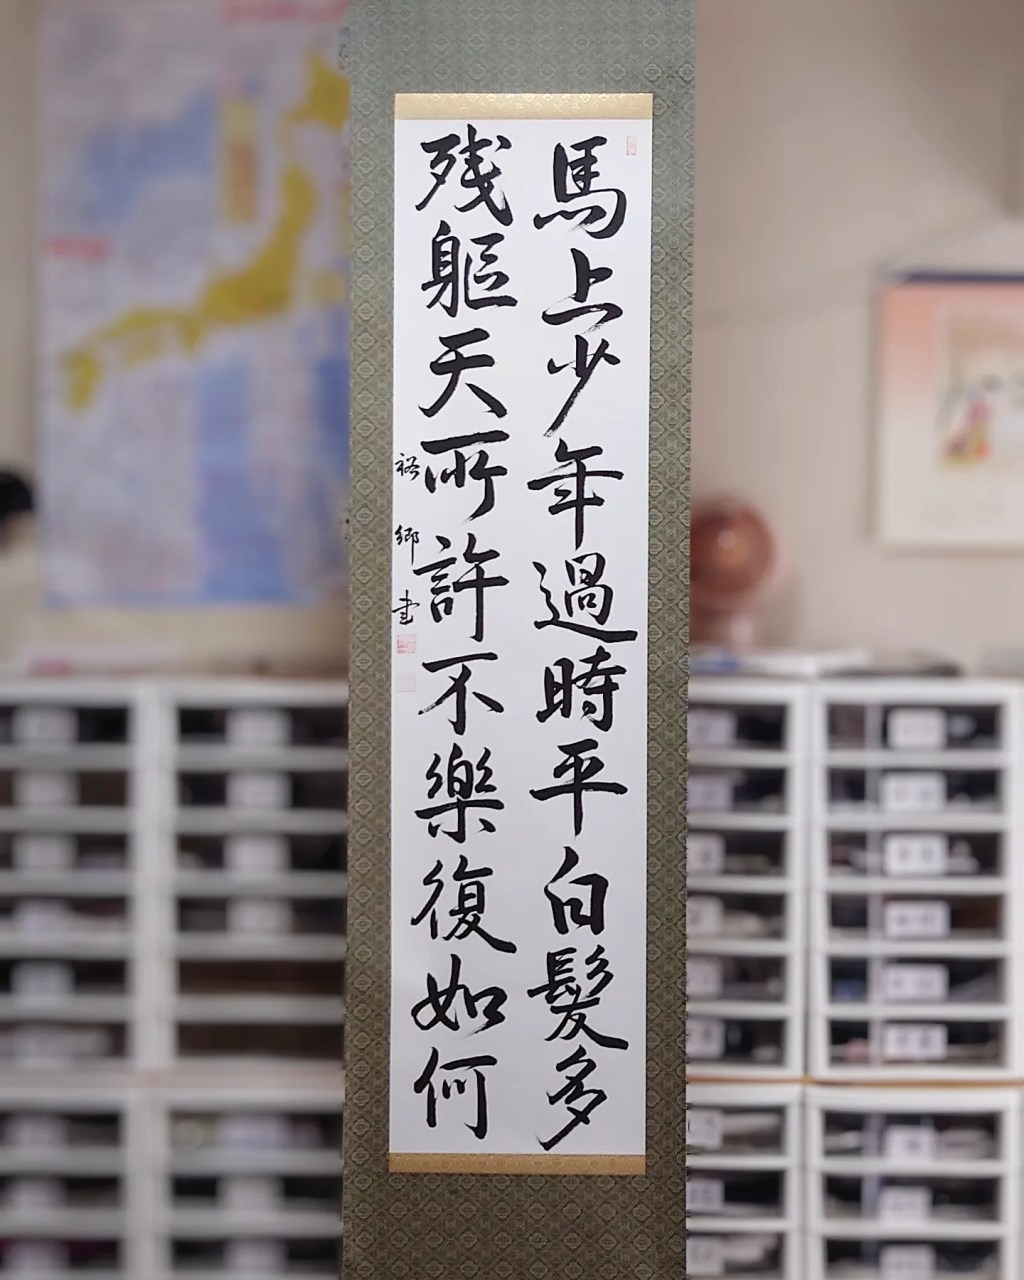 馬上少年過時平白髮多
残軀天所許不樂復如何
裕郷書